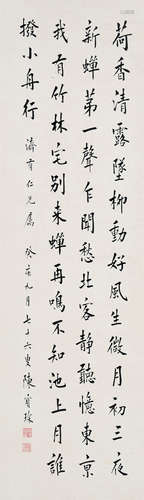 荷香清露墜柳動好風生微月初三夜
新蟬弟一聲乍聞愁北客靜聽憶東京
我有竹林宅別來蟬再鳴不知池上月誰
撥小舟行 濟育仁兄屬 癸亥九月七十六叟陳寶琛